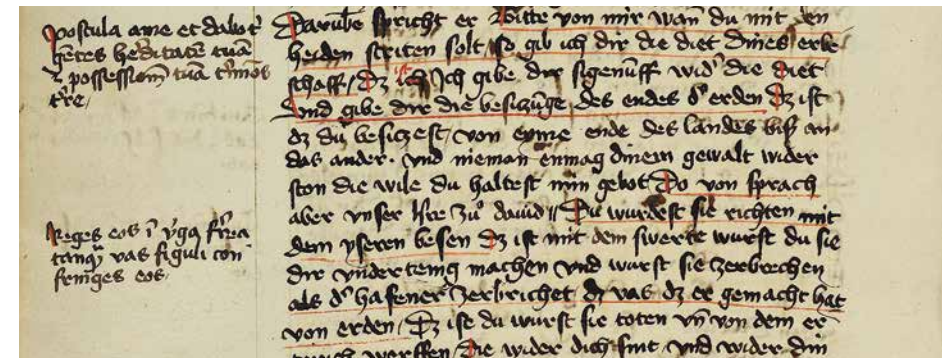 postula a me et dabo t'
gētes h'editatē tuā
z possessiom̄ tuā t'mīos
t're /
Reges eos ī v'ga ferrea
tanq̄ vas figuli con
fringes eos /
Darūbe spricht er Bitte von mir wan̄ du mit den
heiden striten solt / so gib ich dir die diet dines erbe
schafft / Dz ist Ich gibe dir sigenūff wid' die diet
Vnd gibe dir die besiczūge des endes d' erden Dz ist
dz du besiczest / von eyme ende des landes bisz an
das ander · vnd nieman enmag dinem gewalt wider
ston die wile du haltest min gebot Do von sprach
aber vnser h're zu dauid // Du wurdest sie richten mit
dem yseren besen Dz ist mit dem swerte wurst du sie
dir vndertenig machen vnd wurst sie zerbrechen
als d' hafener zerbrichet dz vas dz er gemacht hat
von erden / Dz ist du wurst sie toten vn̄ von dem er
werffen die wider dich sint vnd wider din